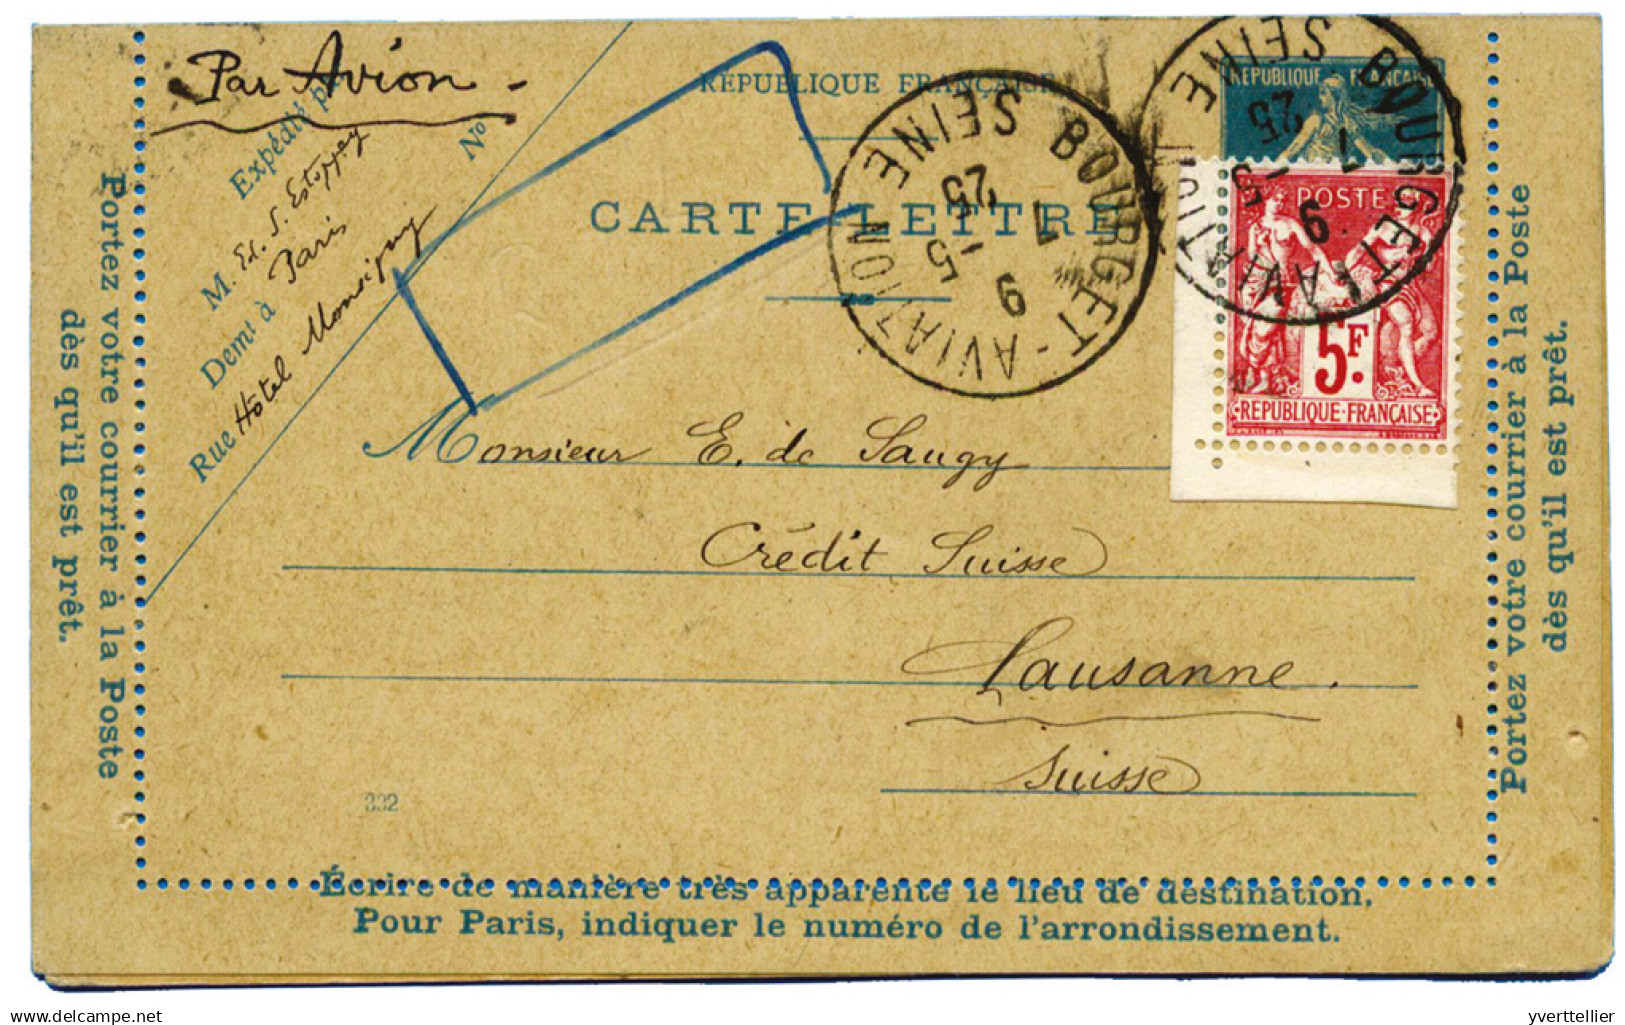 Par Avion
Expédié par
M. Ed. S. Estoppey
Demt à Paris
Rue Hôtel Monsigny
No
RÉPUBLIQUE FRANÇAISE
CARTE LETTRE
BOURGET-AVIATION
SEINE
9
7 - 5
25
BOURGET-AVIATION
SEINE
9
7 - 5
25
REPUBLIQUE FRANÇAISE
POSTE
5F.
REPUBLIQUE FRANÇAISE
Monsieur E. de Saugy
Crédit Suisse
Lausanne.
Suisse
332
Portez votre courrier à la Poste
dès qu'il est prêt.
Portez votre courrier à la Poste
dès qu'il est prêt.
Écrire de manière très apparente le lieu de destination.
Pour Paris, indiquer le numéro de l'arrondissement.
delcampe.net
yverttellier